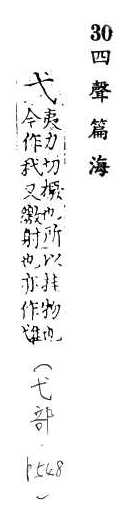 30 四聲篇海
弋 夷力切橛也所以挂物也
今作又繳射也亦作
（弋部 p548）